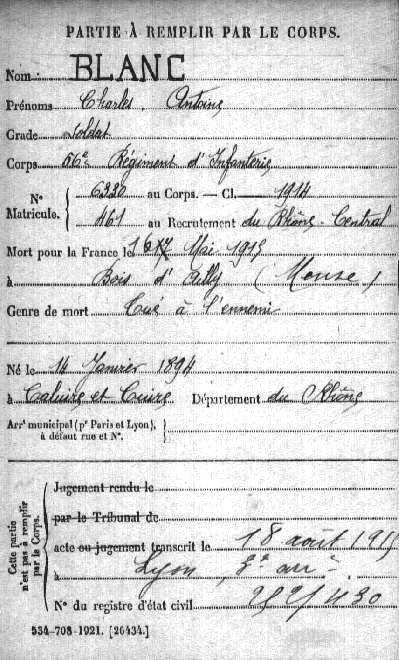 PARTIE À REMPLIR PAR LE CORPS.
Nom : BLANC
Prénoms Charles, Antoine
Grade Soldat
Corps 56e Régiment d'Infanterie
N° Matricule. { 6330 au Corps. — Cl. 1914
461 au Recrutement du Rhône Central
Mort pour la France le Mai 1915
à Bois d'Ailly (Meuse)
Genre de mort Tué à l'ennemi
Né le 14 Janvier 1894
à Caluire et Cuire Département du Rhône
Arrt municipal (pr Paris et Lyon), à défaut rue et N°. }
Cette partie n'est pas à remplir par le Corps.
Jugement rendu le
par le Tribunal de
acte ou jugement transcrit le 18 août 1915
à Lyon, 3e arrt
N° du registre d'état civil
534-708-1921. [26434.]